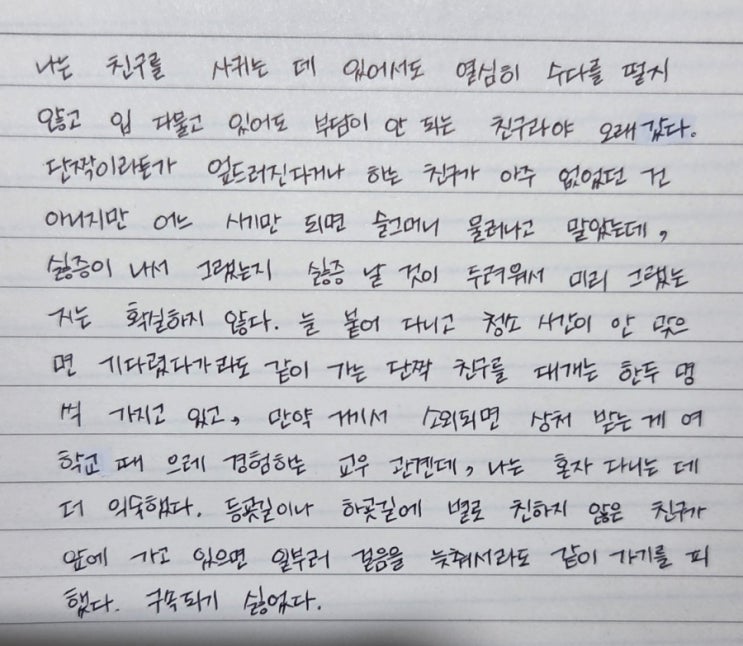 나는 친구를 사귀는 데 있어서도 열심히 수다를 떨지
않고 입 다물고 있어도 부담이 안 되는 친구라야 오래 갔다.
단짝이라든가 엎드러진다거나 하는 친구가 아주 없었던 건
아니지만 어느 시기만 되면 슬그머니 물러나고 말았는데,
싫증이 나서 그랬는지 싫증 날 것이 두려워서 미리 그랬는
지는 확실하지 않다. 늘 붙어 다니고 청소 시간이 안 맞으
면 기다렸다가라도 같이 가는 단짝 친구를 대개는 한두 명
씩 가지고 있고, 만약 게서 소외되면 상처 받는 게 여
학교 때 으레 경험하는 교우 관곈데, 나는 혼자 다니는 데
더 익숙했다. 등굣길이나 하굣길에 별로 친하지 않은 친구가
앞에 가고 있으면 일부러 걸음을 늦춰서라도 같이 가기를 피
했다. 구속되기 싫었다.